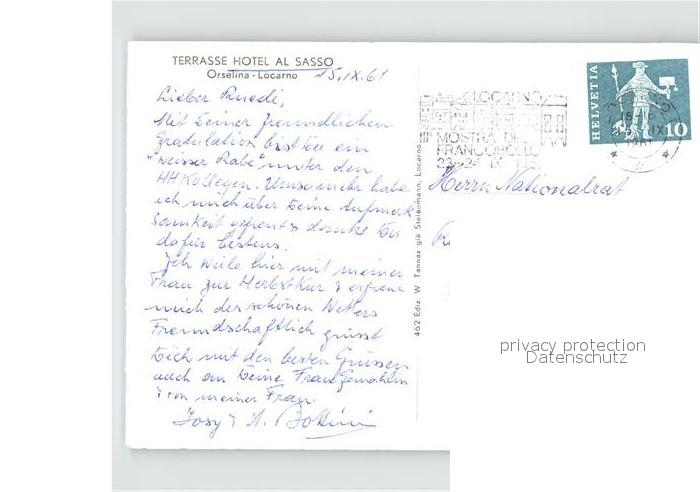 TERRASSE HOTEL AL SASSO
Orselina - Locarno
15.IX.61
Lieber Ruedi,
Mit Deiner freundlichen
Gratulation bist Du ein
"weisser Rabe" unter den
HH Kollegen. Umso mehr habe
ich mich über Deine Aufmerk
samkeit gefreut & danke Dir
dafür bestens.
Ich weile hier mit meiner
Frau zur Herbstkur & erfreue
mich des schönen Wetters
Freundschaftlich grüsst
Dich mit den besten Grüssen
auch an Deine Frau Gemahlin
& von meiner Frau
Josy & A.
462 Ediz. W. Tannaz già Steinemann, Locarno
LOCARNO
MOSTRA DI
FRANCOBOLLI
23-24 IX
HELVETIA
10
Herrn Nationalrat
privacy protection
Datenschutz